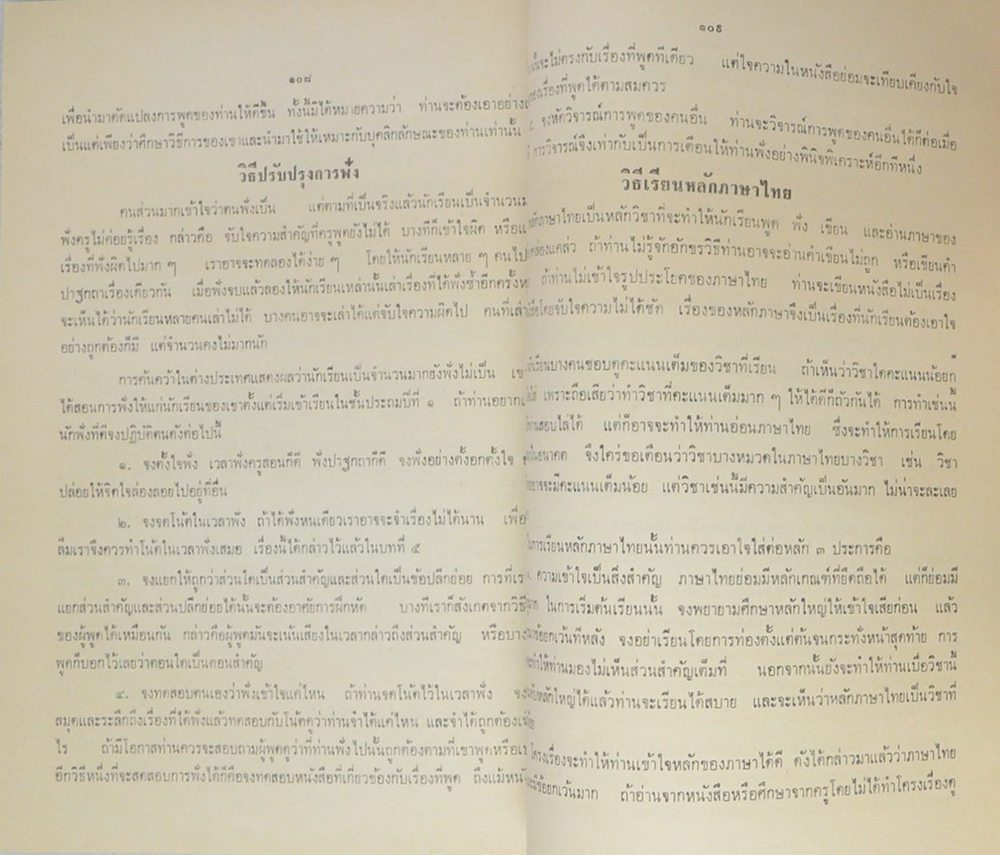 ๑๐๘
เพื่อนำมาดัดแปลงการพูดของท่านให้ดีขึ้น ทั้งนี้มิได้หมายความว่า ท่านจะต้องเอาอย่าง
เป็นแต่เพียงว่าศึกษาวิธีการของเขาและนำมาใช้ให้เหมาะกับบุคลิกลักษณะของท่านเท่านั้น
วิธีปรับปรุงการฟัง
คนส่วนมากเข้าใจว่าตนฟังเป็น แต่ตามที่เป็นจริงแล้วนักเรียนเป็นจำนวนม
ฟังครูไม่ค่อยรู้เรื่อง กล่าวคือ จับใจความสำคัญที่ครูพูดยังไม่ได้ บางทีก็เข้าใจผิด หรือ
เรื่องที่ฟังผิดไปมาก ๆ เราอาจจะทดลองได้ง่าย ๆ โดยให้นักเรียนหลาย ๆ คนไป
ปาฐกถาเรื่องเดียวกัน เมื่อฟังจบแล้วลองให้นักเรียนเหล่านั้นเล่าเรื่องที่ได้ฟังซ้ำอีกครั้งห
จะเห็นได้ว่านักเรียนหลายคนเล่าไม่ได้ บางคนอาจจะเล่าได้แต่จับใจความผิดไป คนที่เล่า
อย่างถูกต้องก็มี แต่จำนวนคงไม่มากนัก
การค้นคว้าในต่างประเทศแสดงผลว่านักเรียนเป็นจำนวนมากยังฟังไม่เป็น เข
ได้สอนการฟังให้แก่นักเรียนของเขาตั้งแต่เริ่มเข้าเรียนในชั้นประถมปีที่ ๑ ถ้าท่านอยาก
นักฟังที่ดีจงปฏิบัติตนดังต่อไปนี้
๑. จงตั้งใจฟัง เวลาฟังครูสอนก็ดี ฟังปาฐกถาก็ดี จงฟังอย่างตั้งอกตั้งใจ
ปล่อยให้จิตใจล่องลอยไปอยู่ที่อื่น
๒. จงจดโน้ตในเวลาฟัง ถ้าได้ฟังหนเดียวเราอาจจะจำเรื่องไม่ได้นาน เพื่อ
ลืมเราจึงควรทำโน้ตในเวลาฟังเสมอ เรื่องนี้ได้กล่าวไว้แล้วในบทที่ ๕
๓. จงแยกให้ถูกว่าส่วนใดเป็นส่วนสำคัญและส่วนใดเป็นข้อปลีกย่อย การที่เร
แยกส่วนสำคัญและส่วนปลีกย่อยได้นั้นจะต้องอาศัยการฝึกหัด บางทีเราก็สังเกตจากวิธี
ของผู้พูดได้เหมือนกัน กล่าวคือผู้พูดมันจะเน้นเสียงในเวลากล่าวถึงส่วนสำคัญ หรือบาง
พูดก็บอกไว้เลยว่าตอนใดเป็นตอนสำคัญ
๔. จงทดสอบตนเองว่าฟังเข้าใจแค่ไหน ถ้าท่านจดโน้ตไว้ในเวลาฟัง จง
สมุดและระลึกถึงเรื่องที่ได้ฟังแล้วทดสอบกับโน้ตดูว่าท่านจำได้แค่ไหน และจำได้ถูกต้อง
ไร ถ้ามีโอกาสท่านควรจะสอบถามผู้พูดดูว่าที่ท่านฟังไปนั้นถูกต้องตามที่เขาพูดหรือ
อีกวิธีหนึ่งที่จะสดสอบการฟังได้ก็คือจงทดสอบหนังสือที่เกี่ยวข้องกับเรื่องที่พูด ถึงแม้หนัง
๑๐๙
จะไม่ตรงกับเรื่องที่พูดทีเดียว แต่ใจความในหนังสือย่อมจะเทียบเคียงกับใจ
เรื่องที่พูดได้ตามสมควร
จงหัดวิจารณ์การพูดของคนอื่น ท่านจะวิจารณ์การพูดของคนอื่นได้ก็ต่อเมื่อ
การวิจารณ์จึงเท่ากับเป็นการเตือนให้ท่านฟังอย่างพินิจพิเคราะห์อีกทีหนึ่ง
วิธีเรียนหลักภาษาไทย
หลักภาษาไทยเป็นหลักวิชาที่จะทำให้นักเรียนพูด ฟัง เขียน และอ่านภาษาของ
คล่องแคล่ว ถ้าท่านไม่รู้จักอักขรวิธีท่านอาจจะอ่านคำเขียนไม่ถูก หรือเขียนคำ
ถ้าท่านไม่เข้าใจรูปประโยคของภาษาไทย ท่านจะเขียนหนังสือไม่เป็นเรื่อง
โดยจับใจความไม่ได้ชัด เรื่องของหลักภาษาจึงเป็นเรื่องที่นักเรียนต้องเอาใจ
เรียนบางคนชอบดูคะแนนเต็มของวิชาที่เรียน ถ้าเห็นว่าวิชาใดคะแนนน้อยก็
เพราะถือเสียว่าทำวิชาที่คะแนนเต็มมาก ๆ ให้ได้ดีก็ถัวกันได้ การทำเช่นนี้
สอบไล่ได้ แต่ก็อาจจะทำให้ท่านอ่อนภาษาไทย ซึ่งจะทำให้การเรียนโดย
ในอนาคต จึงใคร่ขอเตือนว่าวิชาบางหมวดในภาษาไทยบางวิชา เช่น วิชา
จะมีคะแนนเต็มน้อย แต่วิชาเช่นนี้มีความสำคัญเป็นอันมาก ไม่น่าจะละเลย
ในการเรียนหลักภาษาไทยนั้นท่านควรเอาใจใส่ต่อหลัก ๓ ประการคือ
ความเข้าใจเป็นสิ่งสำคัญ ภาษาไทยย่อมมีหลักเกณฑ์ที่ยึดถือได้ แต่ก็ย่อมมี
ในการเริ่มต้นเรียนนั้น จงพยายามศึกษาหลักใหญ่ให้เข้าใจเสียก่อน แล้ว
ข้อยกเว้นทีหลัง จงอย่าเรียนโดยการท่องตั้งแต่ต้นจนกระทั่งหน้าสุดท้าย การ
ทำให้ท่านมองไม่เห็นส่วนสำคัญเต็มที่ นอกจากนั้นยังจะทำให้ท่านเบื่อวิชานี้
หลักใหญ่ได้แล้วท่านจะเรียนได้สบาย และจะเห็นว่าหลักภาษาไทยเป็นวิชาที่
โครงเรื่องจะทำให้ท่านเข้าใจหลักของภาษาได้ดี ดังได้กล่าวมาแล้วว่าภาษาไทย
ข้อยกเว้นมาก ถ้าอ่านจากหนังสือหรือศึกษาจากครูโดยไม่ได้ทำโครงเรื่องดู